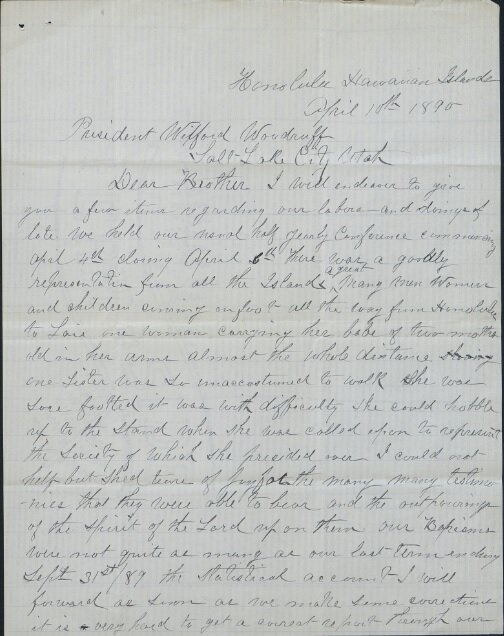 Honolulu Hawaiian Islands
April 10th 1890
President Wilford Woodruff
Salt Lake City Utah
Dear Brother I will endeavor to give
you a few items regarding our labors and doings of
late we held our usual half yearly Conference commencing
april 4th closing April 6th there was a goodly
representation from all the Islands a great many men Women
and children coming on foot all the way from Honolulu
to Laie one woman carrying her babe of two months
old in her arms almost the whole distance
one Sister was so unaccustomed to walk she was
sore footted it was with difficulty she could hobble
up to the stand when she was called upon to represent
the Society of which she presided over I could not
help but shed tears of joy for the many many testimo
nies that they were able to bear and the outpourings
of the spirit of the Lord up on them our Baptisms
were not quite as many as our last term ending
Sept 31st/89 the Statistical account I will
forward as soon as we make some corrections
it is very hard to get a correct report through our